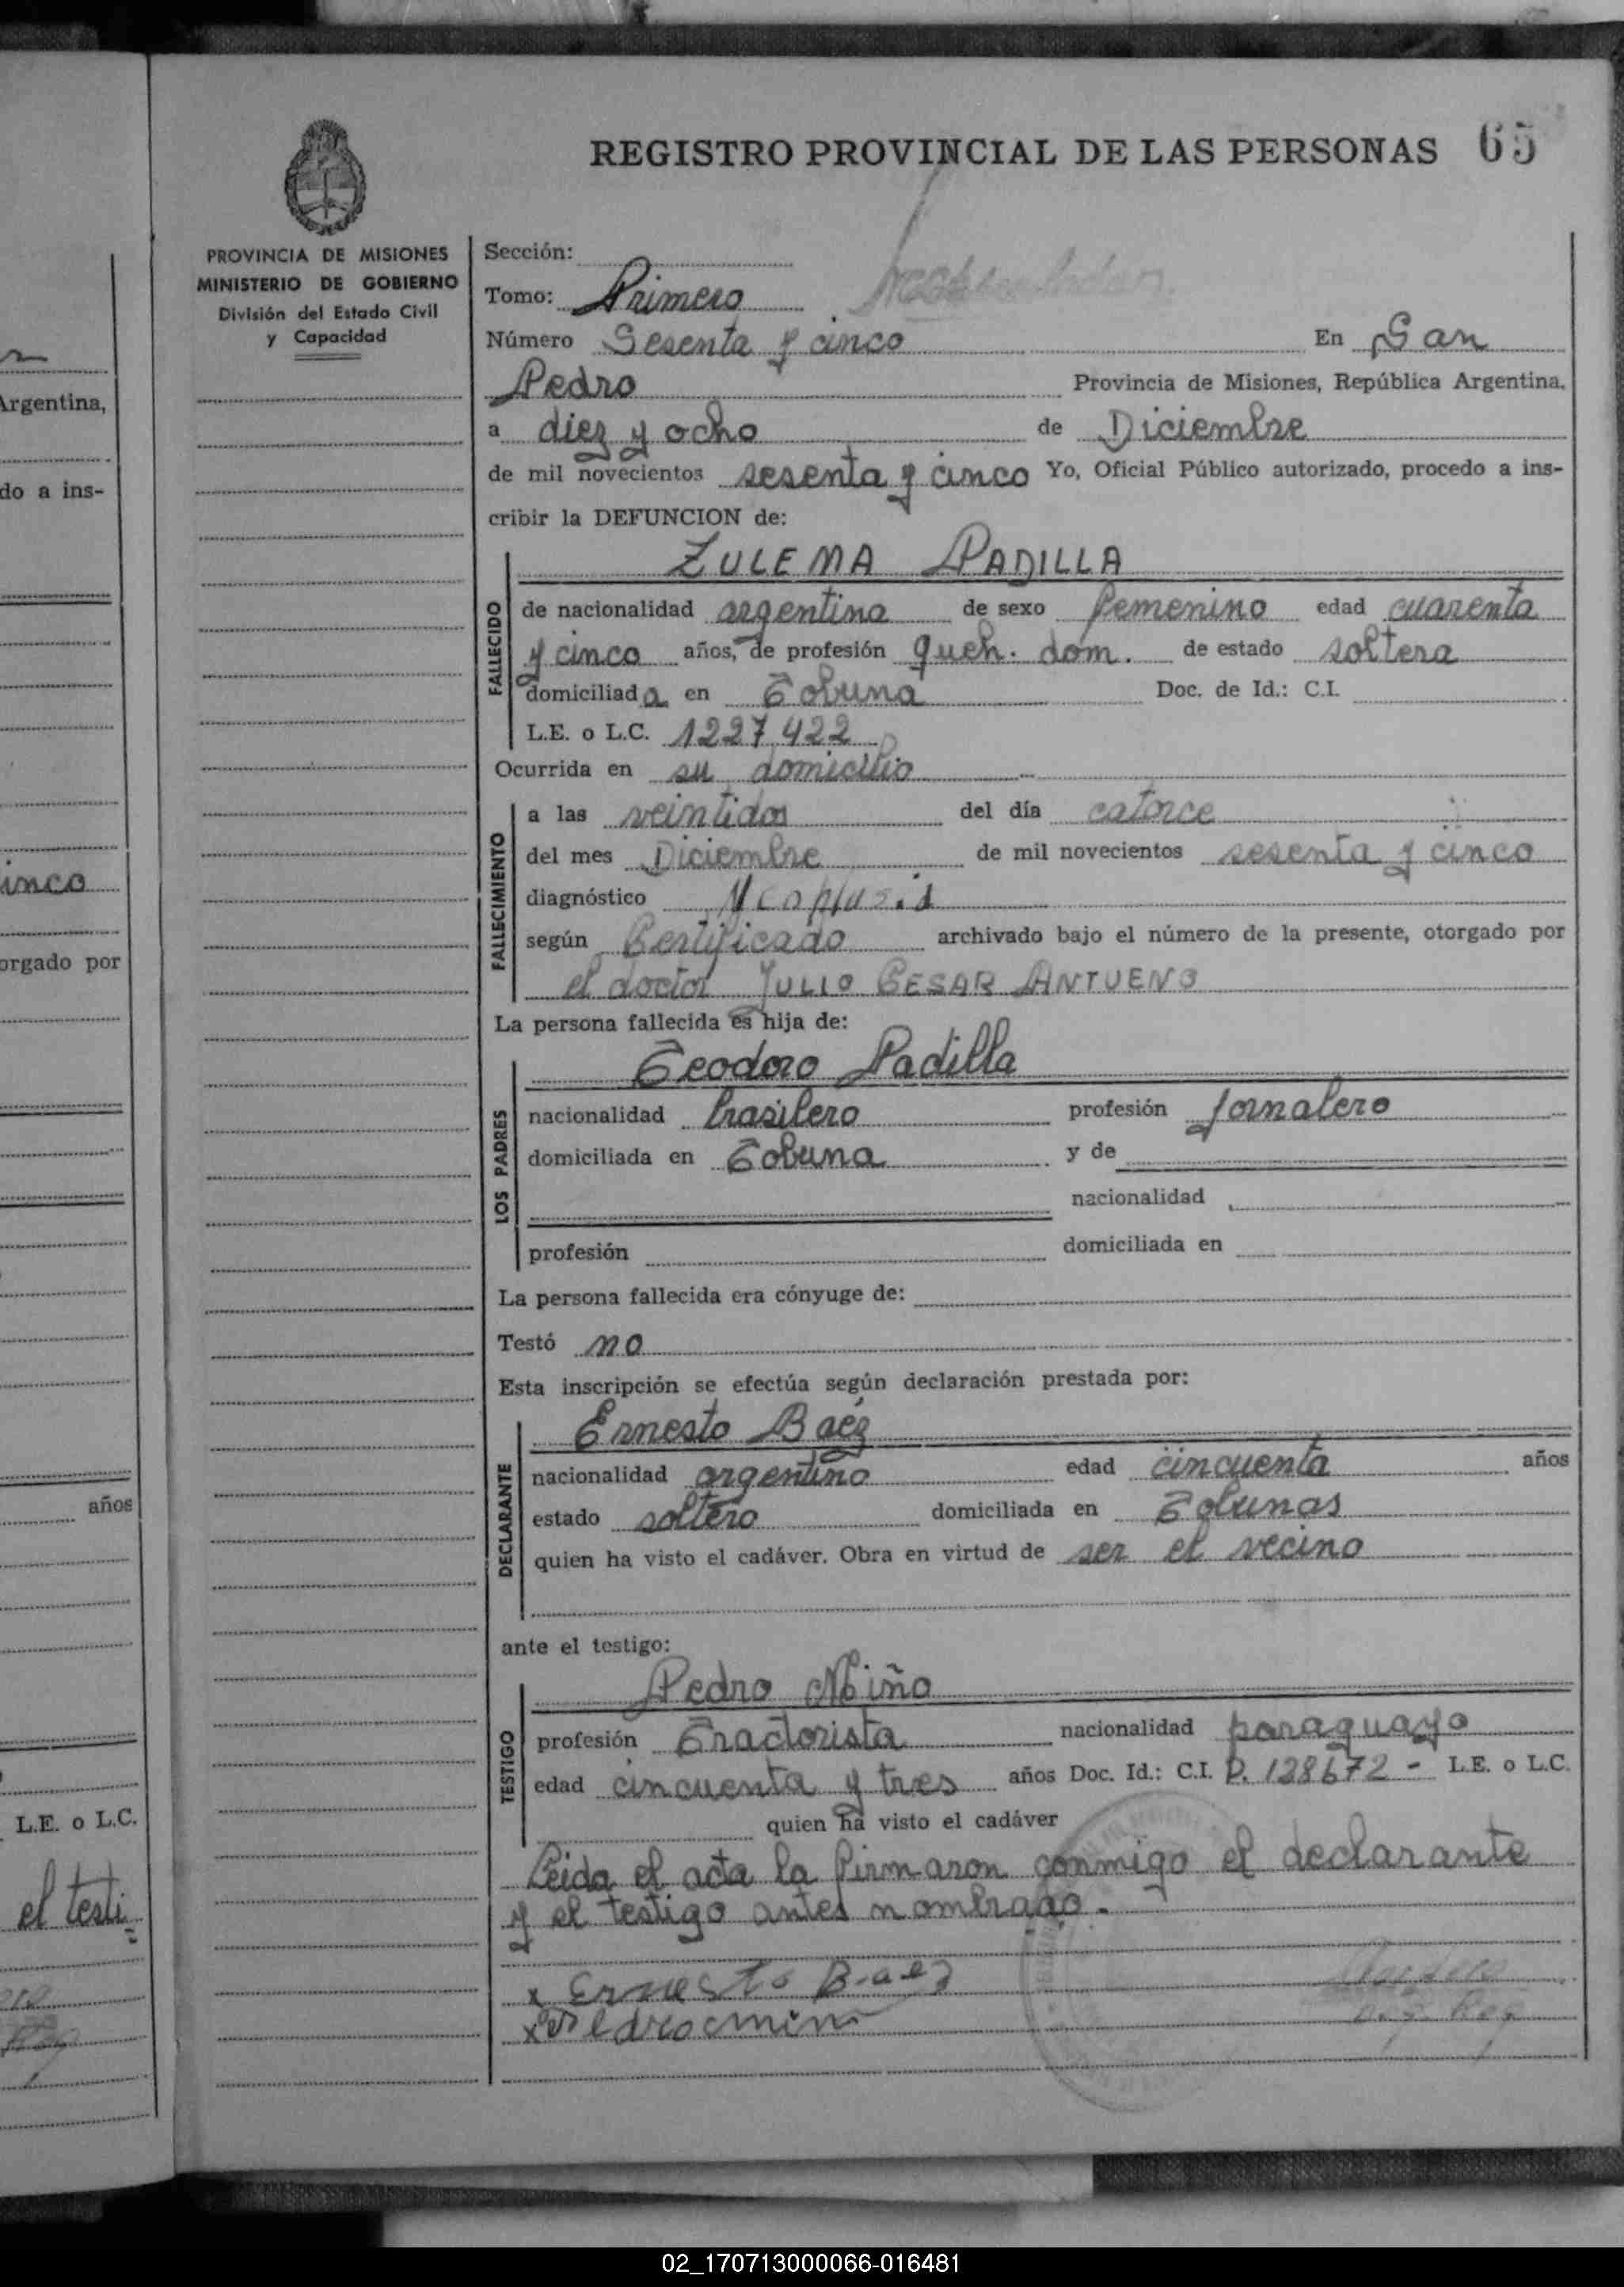 REGISTRO PROVINCIAL DE LAS PERSONAS 65
PROVINCIA DE MISIONES
MINISTERIO DE GOBIERNO
División del Estado Civil
y Capacidad
Sección:
Tomo: Primero
Número Sesenta y cinco En San
Pedro Provincia de Misiones, República Argentina,
a diez y ocho de Diciembre
de mil novecientos sesenta y cinco Yo, Oficial Público autorizado, procedo a ins-
cribir la DEFUNCION de:
ZULEMA PADILLA
FALLECIDO
de nacionalidad argentina de sexo femenino edad cuarenta
y cinco años, de profesión queh. dom. de estado soltera
domiciliada en Tobuna Doc. de Id.: C.I.
L.E. o L.C. 1227422
Ocurrida en su domicilio
FALLECIMIENTO
a las veintidos del día catorce
del mes Diciembre de mil novecientos sesenta y cinco
diagnóstico
según Certificado archivado bajo el número de la presente, otorgado por
el doctor JULIO CESAR ANTUENO
La persona fallecida es hija de:
Teodoro Padilla
LOS PADRES
nacionalidad brasilero profesión jornalero
domiciliada en Tobuna y de
nacionalidad
profesión domiciliada en
La persona fallecida era cónyuge de:
Testó no
Esta inscripción se efectúa según declaración prestada por:
Ernesto Baéz
DECLARANTE
nacionalidad argentino edad cincuenta años
estado soltero domiciliada en Tobunas
quien ha visto el cadáver. Obra en virtud de ser el vecino
ante el testigo:
Pedro Miño
TESTIGO
profesión Tractorista nacionalidad paraguayo
edad cincuenta y tres años Doc. Id.: C.I. P. 128672 - L.E. o L.C.
quien ha visto el cadáver
Leida el acta la firmaron conmigo el declarante
y el testigo antes nombrado.
x Ernesto Baez
x Pedro
Argentina,
do a ins-
inco
orgado por
años
L.E. o L.C.
el testi
02_170713000066-016481